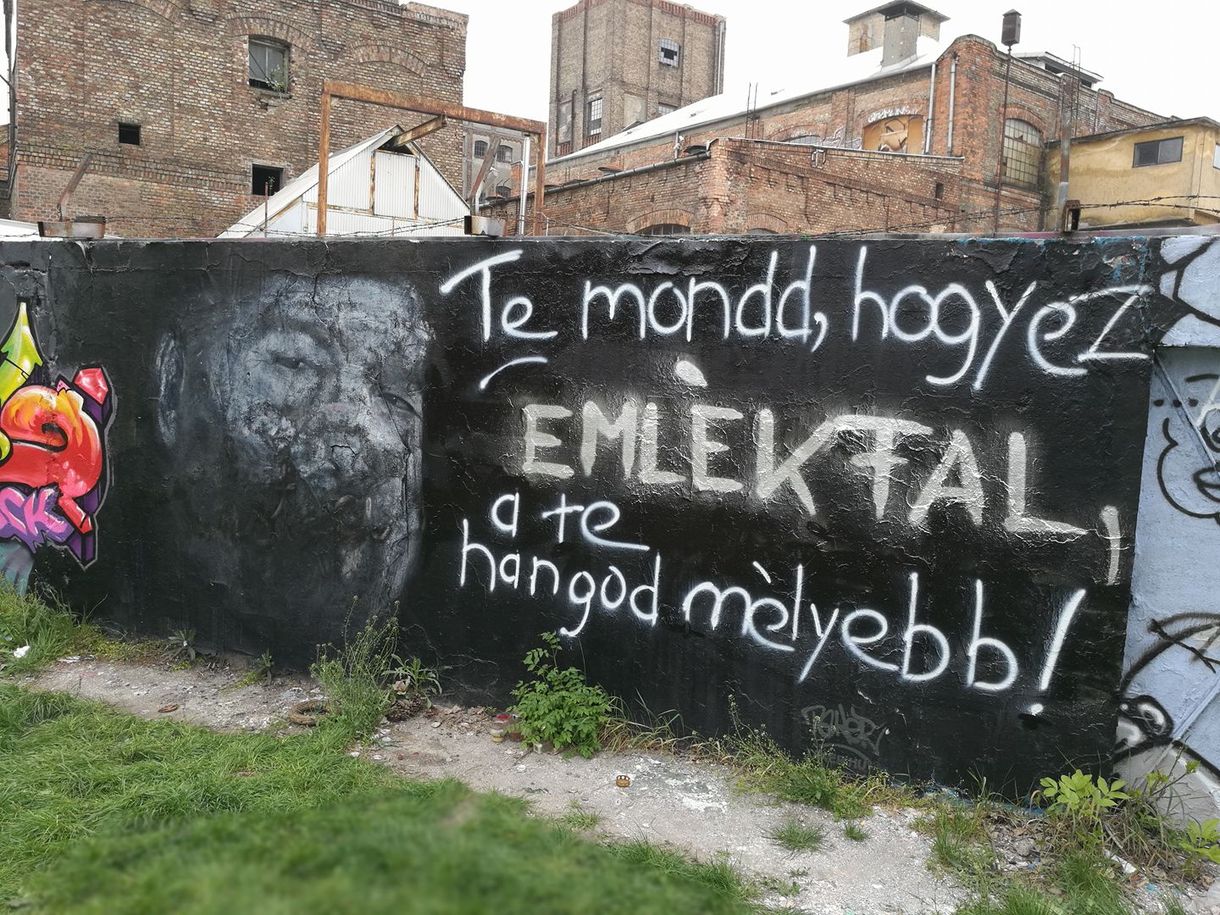 Te mondd, hogy ez
EMLÉKFAL,
a te
hangod mèlyebb!